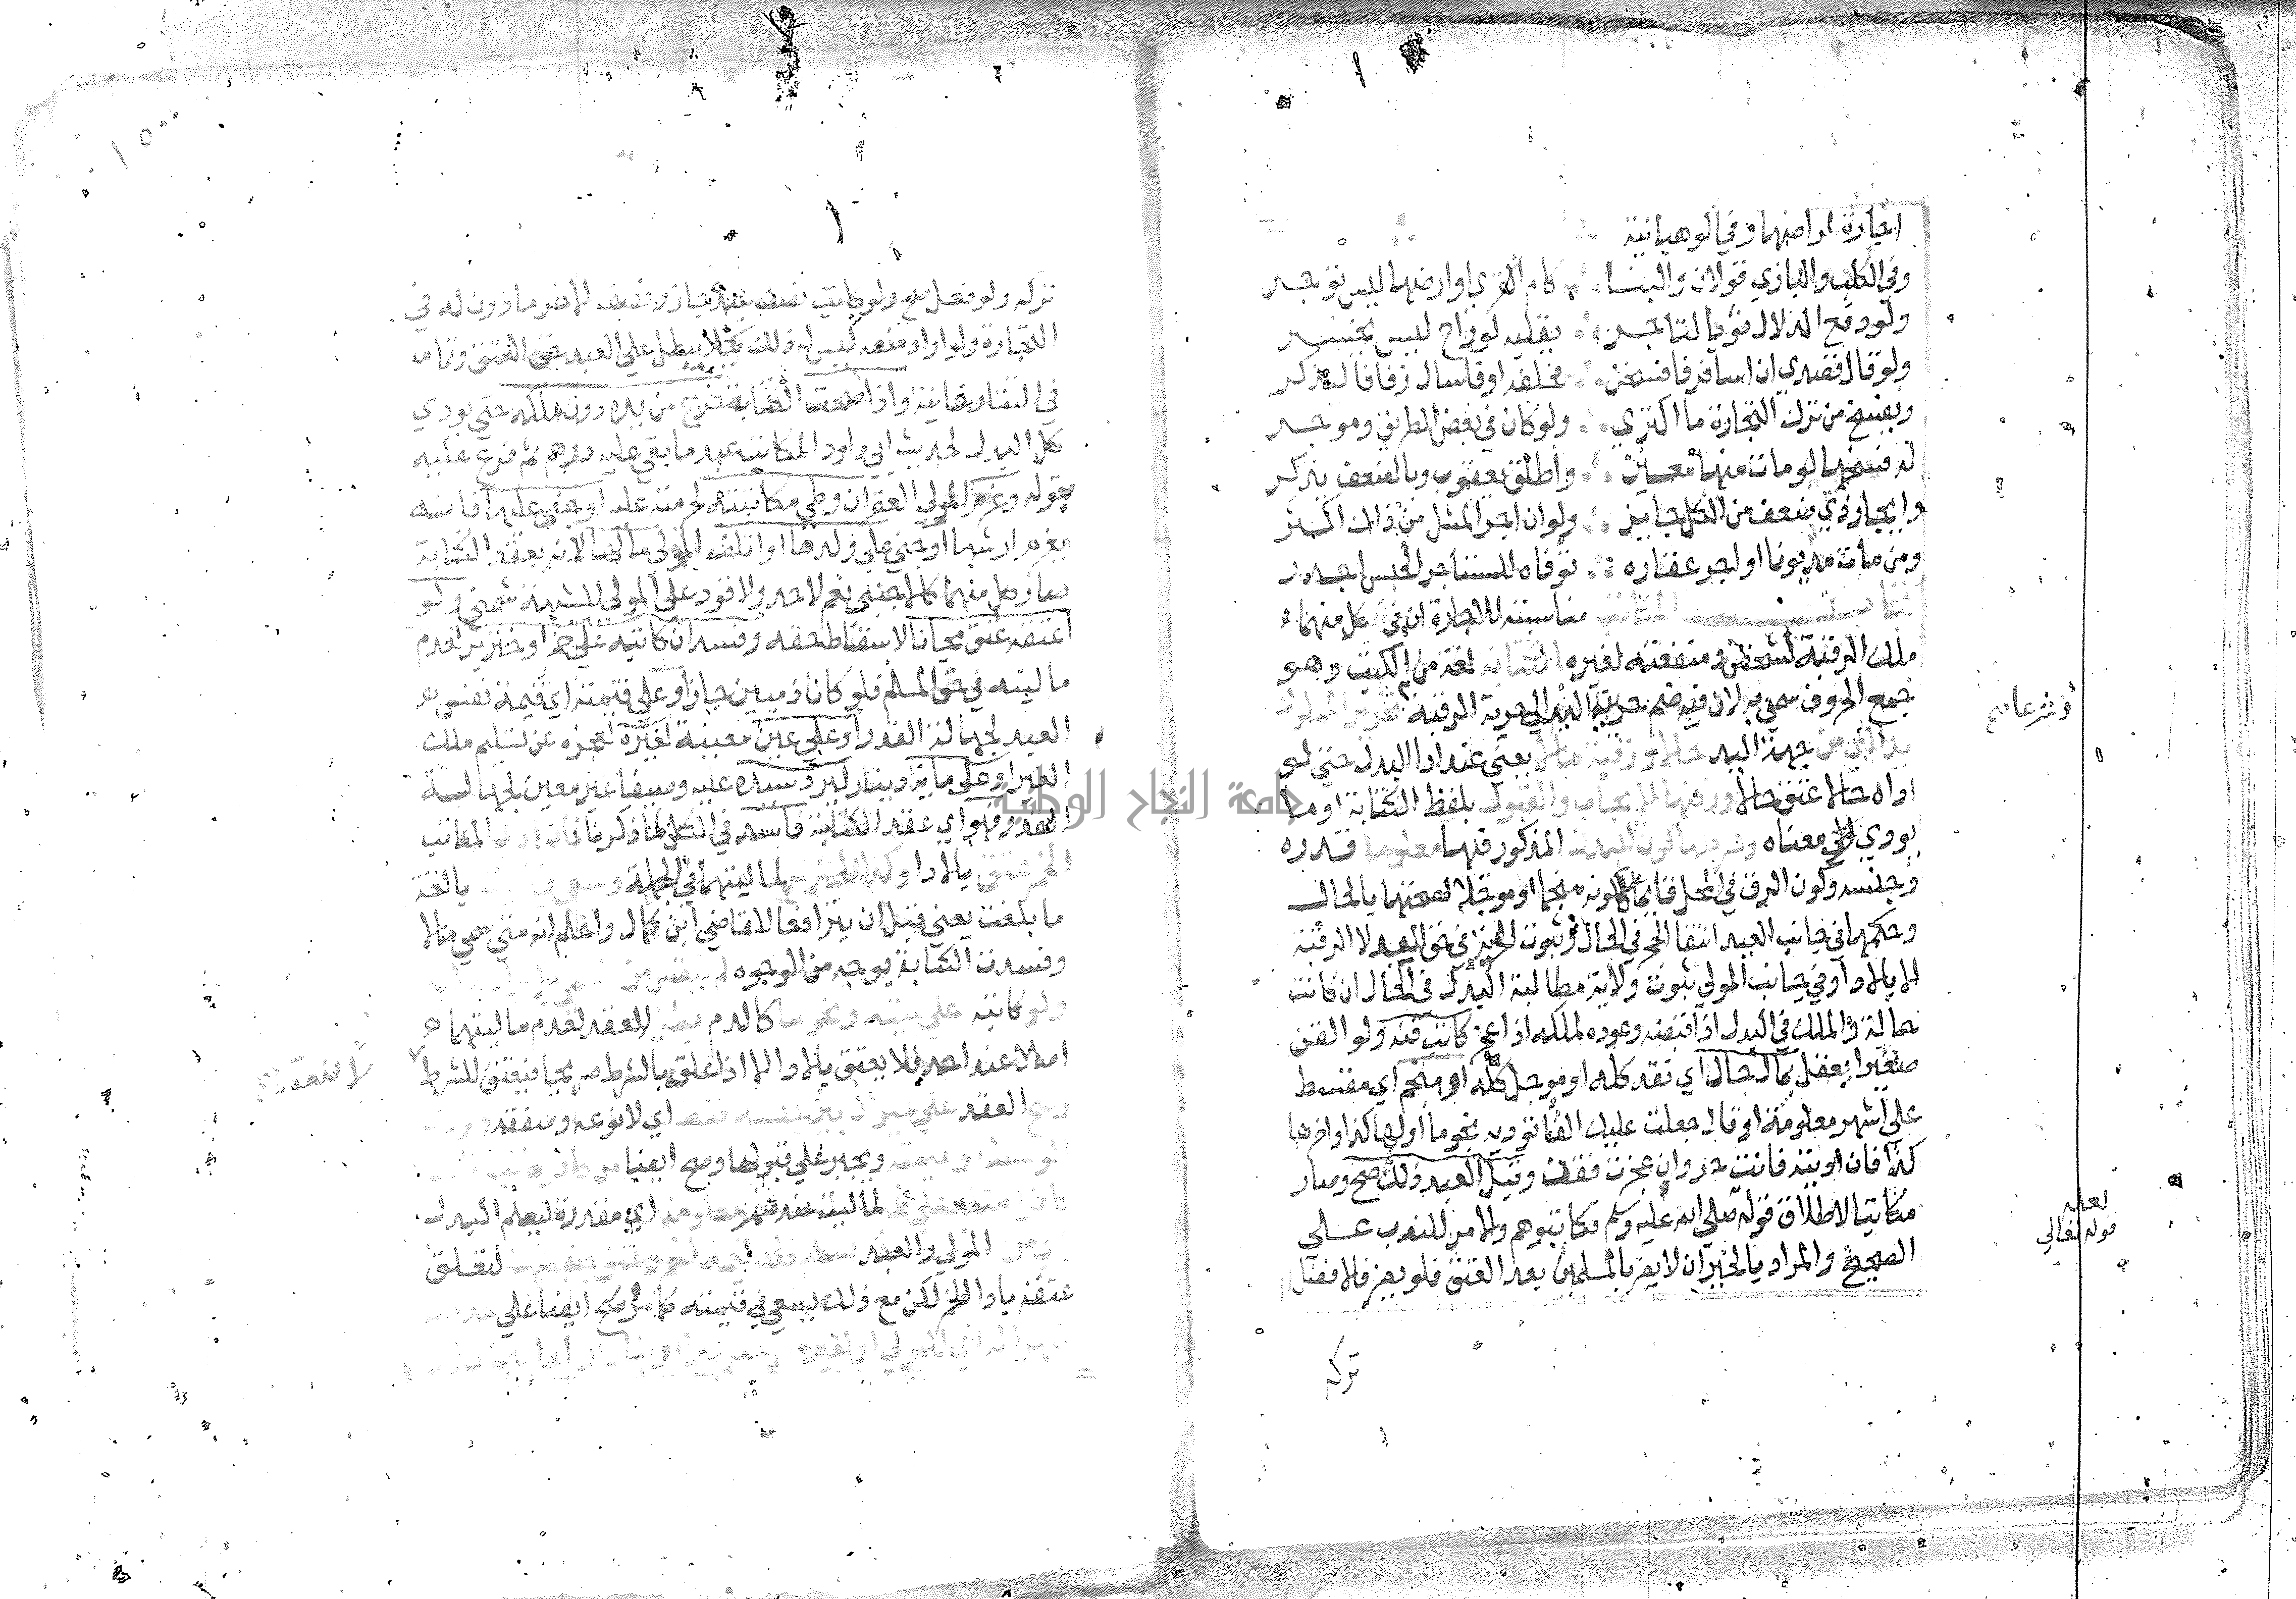 اجارة اراضيها وفي الوهبانية
وفي الكلب والبازي قولان والبنا كام القرى او ارضها ليس توجر
ولو دفع الدلال ثوبا لتاجر يقلبه لو راح ليس يخسر
ولو قال قصدي ان اسافر فافسخن فحلفه او فاسال رفاقا ليذكر
ويفسخ من ترك التجارة ما اكترى ولو كان في بعض الطريق وموجر
له فسخها لو مات منها معين واطلق يعقوب وبالضعف يذكر
وايجار ذي ضعف من الكل جايز ولو ان اجر المثل من ذاك اكثر
ومن مات مديونا او اجر عقاره توفاه للمستاجر الحبس اجدر
كتاب المكاتب مناسبته للاجارة ان في كل منهما
ملك الرقبة لشخص ومنفعته لغيره الكتابة لغة من الكتب وهو
جمع الحروف سمي به لان فيه ضم حرية اليد الى حرية الرقبة تحرير المملوك
يدا اي من جهة اليد حالا ورقبة مالا يعني عند ادا البدل حتى لو
اداه حالا عتق حالا وركنها الايجاب والقبول بلفظ الكتابة او ما
يودي الى معناه وشرطها كون البدل المذكور فيها معلوما قدره
وجنسه وكون الرق في المحل قايما لا كونه منجما او موجلا لصحتها بالحال
وحكمها في جانب العبد انتفا الحجر في الحال وثبوت الحرية في حق اليد لا الرقبة
الا بالادا وفي جانب المولي ثبوت ولاية مطالبة البدل في الحال ان كانت
حالة والملك في البدل اذا قبضه وعوده لملكه اذا عجز كاتب قنه ولو القن
صغيرا يعقل بمال حال اي نقد كله او موجل كله او منجم اي مقسط
على اشهر معلومة او قال جعلت عليك الفا تودية نجوما اولها كذا واخرها
كذا فان اديته فانت حر وان عجزت فقن وقبل العبد ذلك صح وصار
مكاتبا لاطلاق قوله صلى الله عليه وسلم فكاتبوهم والامر للندب على
الصحيح والمراد بالخير ان لا يضر بالمسلمين بعد العتق فلو يضر فالافضل
تركه
لعله
قوله تعالي
تركه ولو فعل صح ولو كاتب نصف عبده جاز ونصفه الاخر ماذون له في
التجارة ولو اراد منعه ليس له ذلك كيلا يبطل على العبد حق العتق وتمامه
في التتارخانية واذا صحت الكتابة خرج من يده دون ملكه حتى يودي
كل البدل لحديث ابي داود المكاتب عبد ما بقي عليه درهم ثم فرع عليه
بقوله وغرم المولي العقر ان وطي مكاتبته لحرمته عليه او جنى عليها فانه
يغرم ارشها او جنى على ولدها او اتلف المولى مالها لانه بعقد الكتابة
صار كل منهما كالاجنبي نعم لا حد ولا قود على المولي للشبهة شمني ولو
اعتقه عتق مجانا لاسقاط حقه وفسد ان كاتبه على خمر او خنزير لعدم
ماليته في حق المسلم فلو كانا ذميين جاز او على قيمته اي قيمة نفس
العبد لجهالة القدر او على عين معينة لغيره لعجزه عن تسليم ملك
الغير او على ماية دينار ليرد سيده عليه وصيفا غير معين لجهالة
القدر فهو اي عقد الكتابة فاسد في الكل لما ذكرنا فان ادى المكاتب
الخمر عتق بالادا وكذا الخنزير لماليتهما في الجملة وسعى في قيمته بالغة
ما بلغت يعني قبل ان يترافعا للقاضي ابن كمال واعلم انه متى سمي مالا
وفسدت الكتابة بوجه من الوجوه
ولو كاتبه على ميتة ونحوها كالدم بطل العقد لعدم ماليتهما
اصلا عند احد فلا يعتق بالادا الا اذا علق بالشرط صريحا فيعتق للشرط
وصح العقد على حيوان بين جنسه فقط اي لا نوعه وصفته
ويجبر على قبولها وصح ايضا
لماليته عندهم معلومة اي مقدرة ليعلم البدل
المولي والعبد لتعلق
عتقه بادا الخمر لكن مع ذلك يسعى في قيمته كما مر وصح ايضا على
جامعة النجاح الوطنية